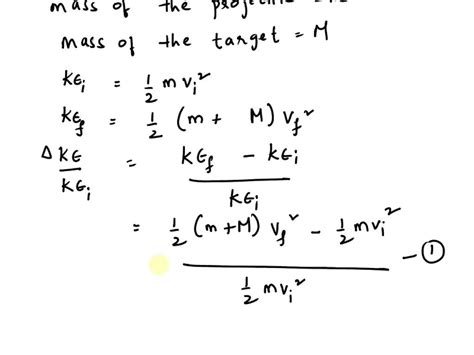 mass of the projectile
mass of the target = M
KE_i = 1/2 m v_i^2
KE_f = 1/2 (m + M) v_f^2
ΔKE / KE_i = (KE_f - KE_i) / KE_i
= (1/2 (m+M) v_f^2 - 1/2 m v_i^2) / (1/2 m v_i^2) - ①